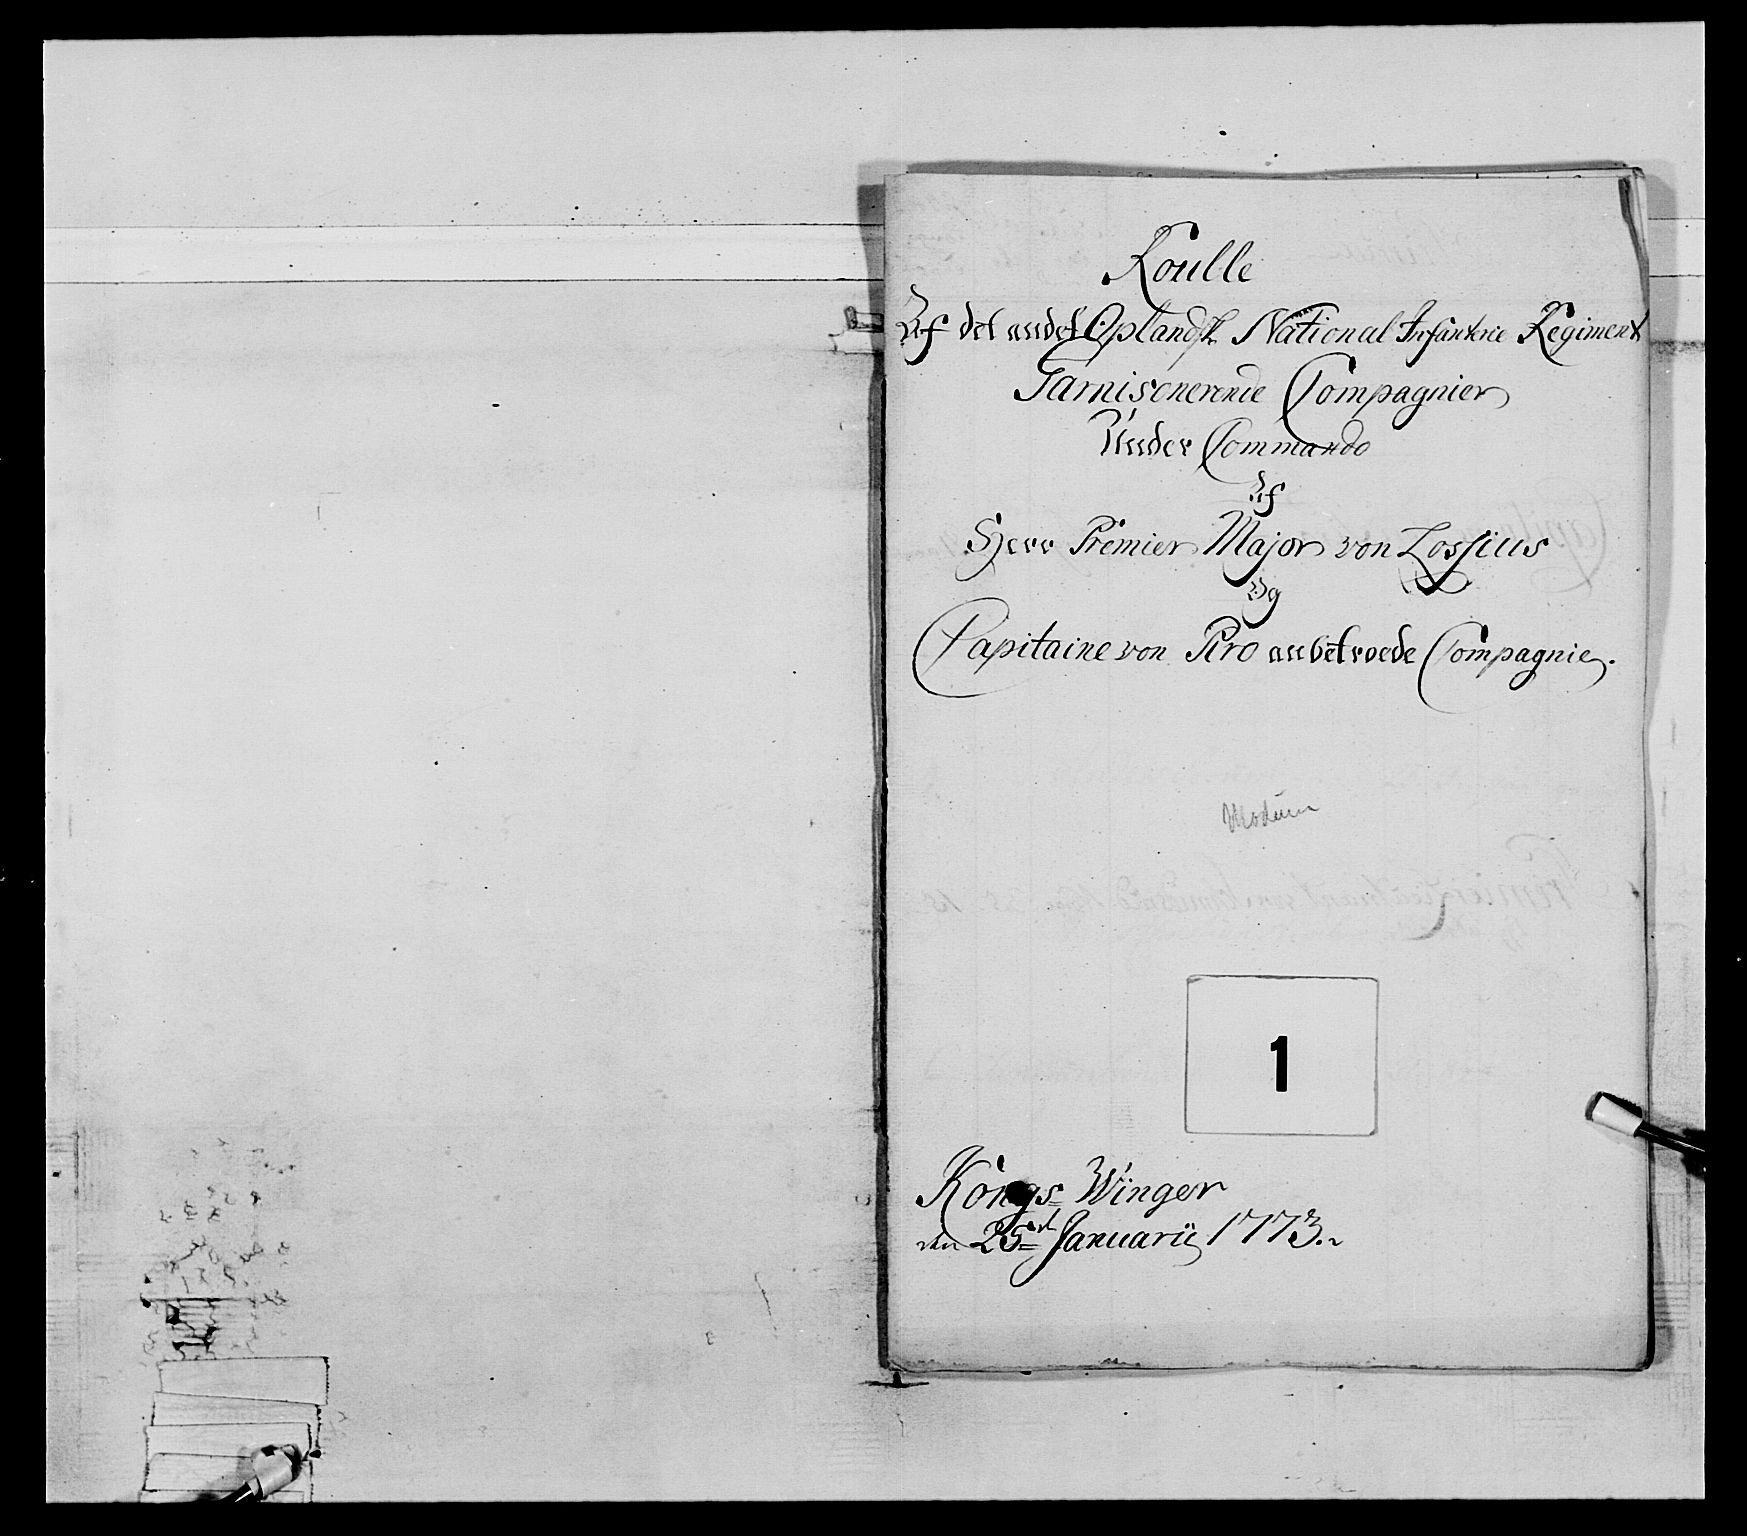 Roulle
Af det andet Oplandske National Infanterie Regiment
Garnisonerende Compagnier
Under Commando
Af
Herr Premier Major von Lossius
Og
Capitaine von Piro anbetroede Compagnie.
Modum
1
Kongs Winger
den 25de Januarii 1773.